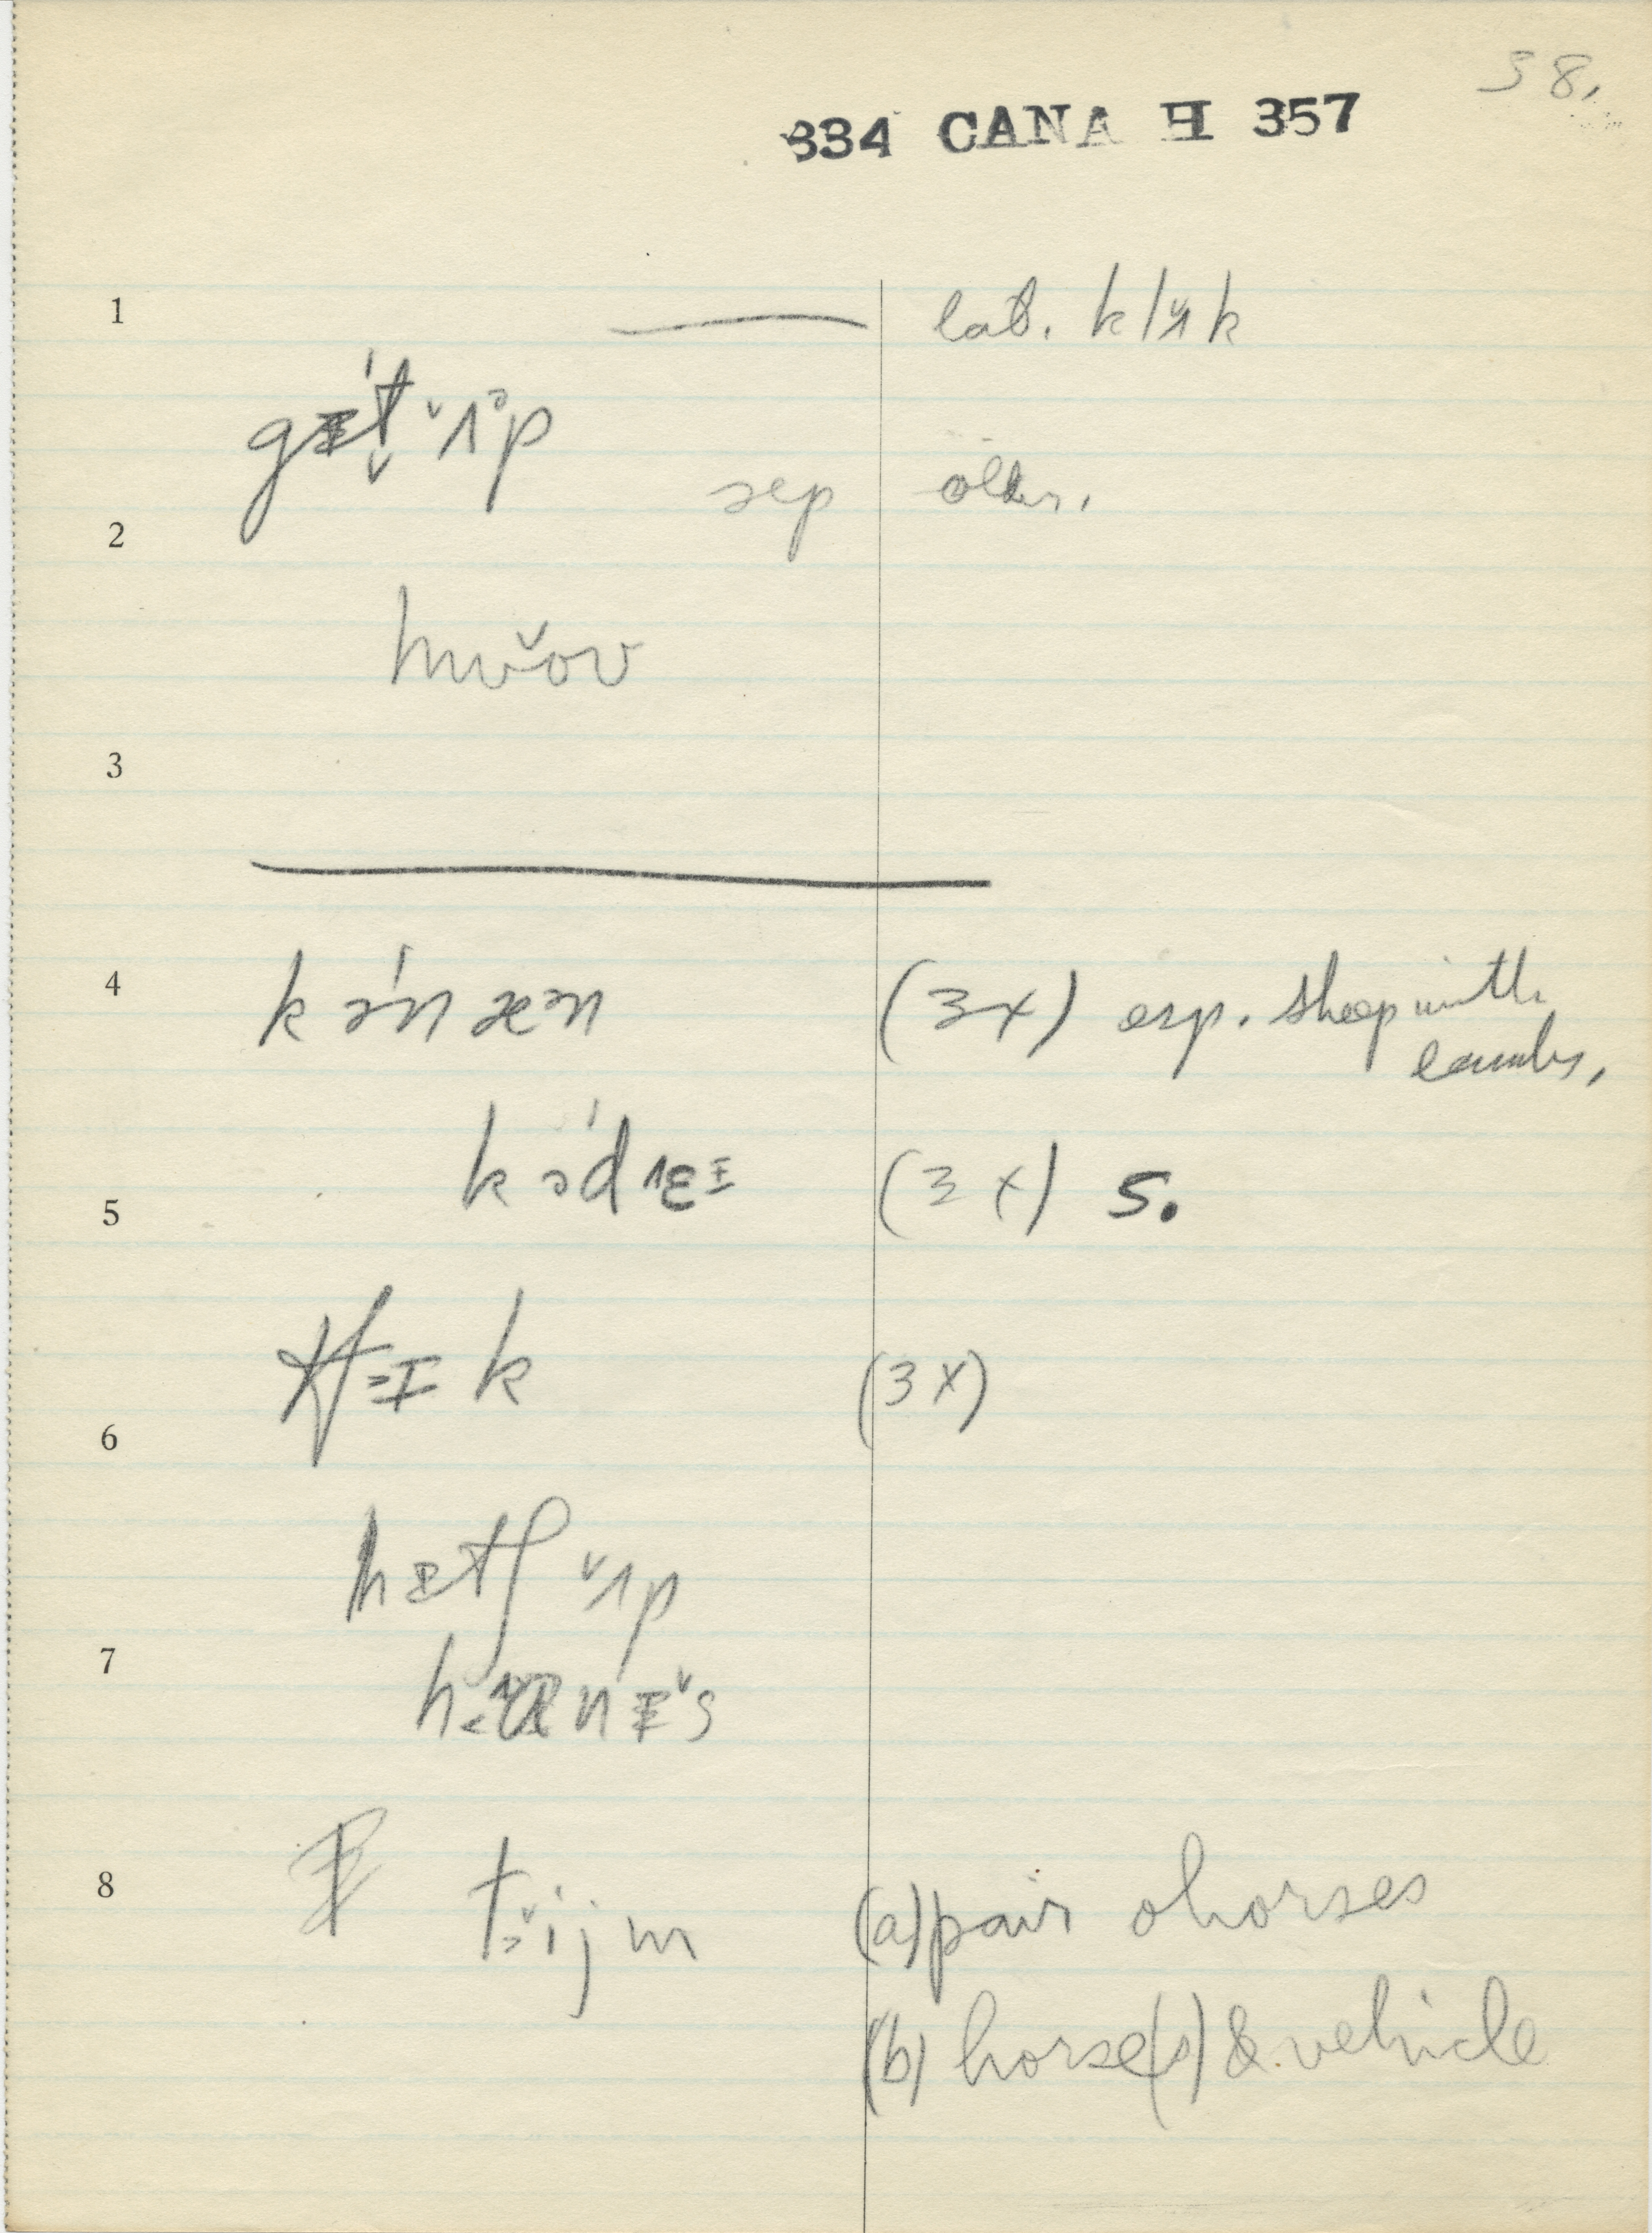 38.
334 CANA H 357
1 — lab. klʌ̌k
gɪt ʌᵊp
sep older.
2
hʊ̌oʊ
3
4 kənæən (3x) esp. sheep with
lambs.
kədɛɪ (3x) S.
5
(3x)
6
hɪtʃ ʌ̌p
7
8 t ijm (a) pair o horses
(b) horse(s) & vehicle